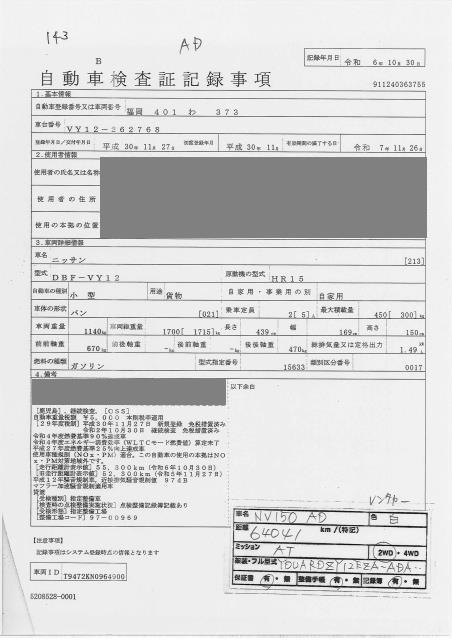 143
AD
B
記録年月日 令和 6年10月30日
自動車検査証記録事項
911240363755
1.基本情報
自動車登録番号又は車両番号 福岡 401 わ 373
車台番号 VY12-262768
登録年月日/交付年月日 平成 30年11月27日 初度登録年月 平成 30年11月 有効期間の満了する日 令和 7年11月26日
2.使用者情報
使用者の氏名又は名称
使用者の住所
使用の本拠の位置
3.車両詳細情報
車名 ニッサン [213]
型式 DBF-VY12 原動機の型式 HR15
自動車の種別 小型 用途 貨物 自家用・事業用の別 自家用
車体の形状 バン [021] 乗車定員 2[ 5]人 最大積載量 450[ 300]kg
車両重量 1140kg 車両総重量 1700[ 1715]kg 長さ 439cm 幅 169cm 高さ 150cm
前前軸重 670kg 前後軸重 -kg 後前軸重 -kg 後後軸重 470kg 総排気量又は定格出力 1.49L
燃料の種類 ガソリン 型式指定番号 15633 類別区分番号 0017
4.備考
以下余白
[鹿児島],継続検査,[OSS]
自動車重量税額 ¥5,000 本則税率適用
[29年度税制]平成30年11月27日 新規登録 免税措置済み
令和2年10月30日 継続検査 免税措置済み
令和4年度燃費基準90%達成車
令和4年度エネルギー消費効率(WLTCモード燃費値)算定未了
平成27年度燃費基準25%向上達成車
使用車種規制(NOx・PM)適合,この自動車の使用の本拠はNO
x・PM対策地域外です。
[走行距離計表示値]55,300km(令和6年10月30日)
[旧走行距離計表示値]52,300km(令和5年11月27日)
平成12年騒音規制車,近接排気騒音規制値 97dB
マフラー加速騒音規制適用車
貨渡
[受検種別]指定整備車
[検査時の点検整備実施状況]点検整備記録簿記載あり
[受検形態]指定整備工場
[整備工場コード]97-00969
レンタカー
車名 NV150 AD 色 白
距離 64041 km/(特記)
ミッション AT 2WD・4WD
架装・フル型式
保証書 有・無 整備手帳 有・無 記録簿 有・無
[注意事項]
記録事項はシステム登録時点の情報となります
車両ID T9472KN0964900
5208528-0001